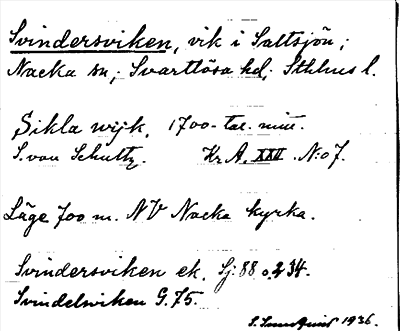 Svindersviken, vik i Saltsjön;
Nacka sn; Svartlösa hd; Sthlms l.
Sikla wijk, 1700-tal. mitt.
S. von Schultz. Kr.A. XXII N:o 7.
Läge 700 m. NV Nacka kyrka.
Svindersviken ek. Sj: 88 o. 234.
Svindelsviken G. 75.
1936.